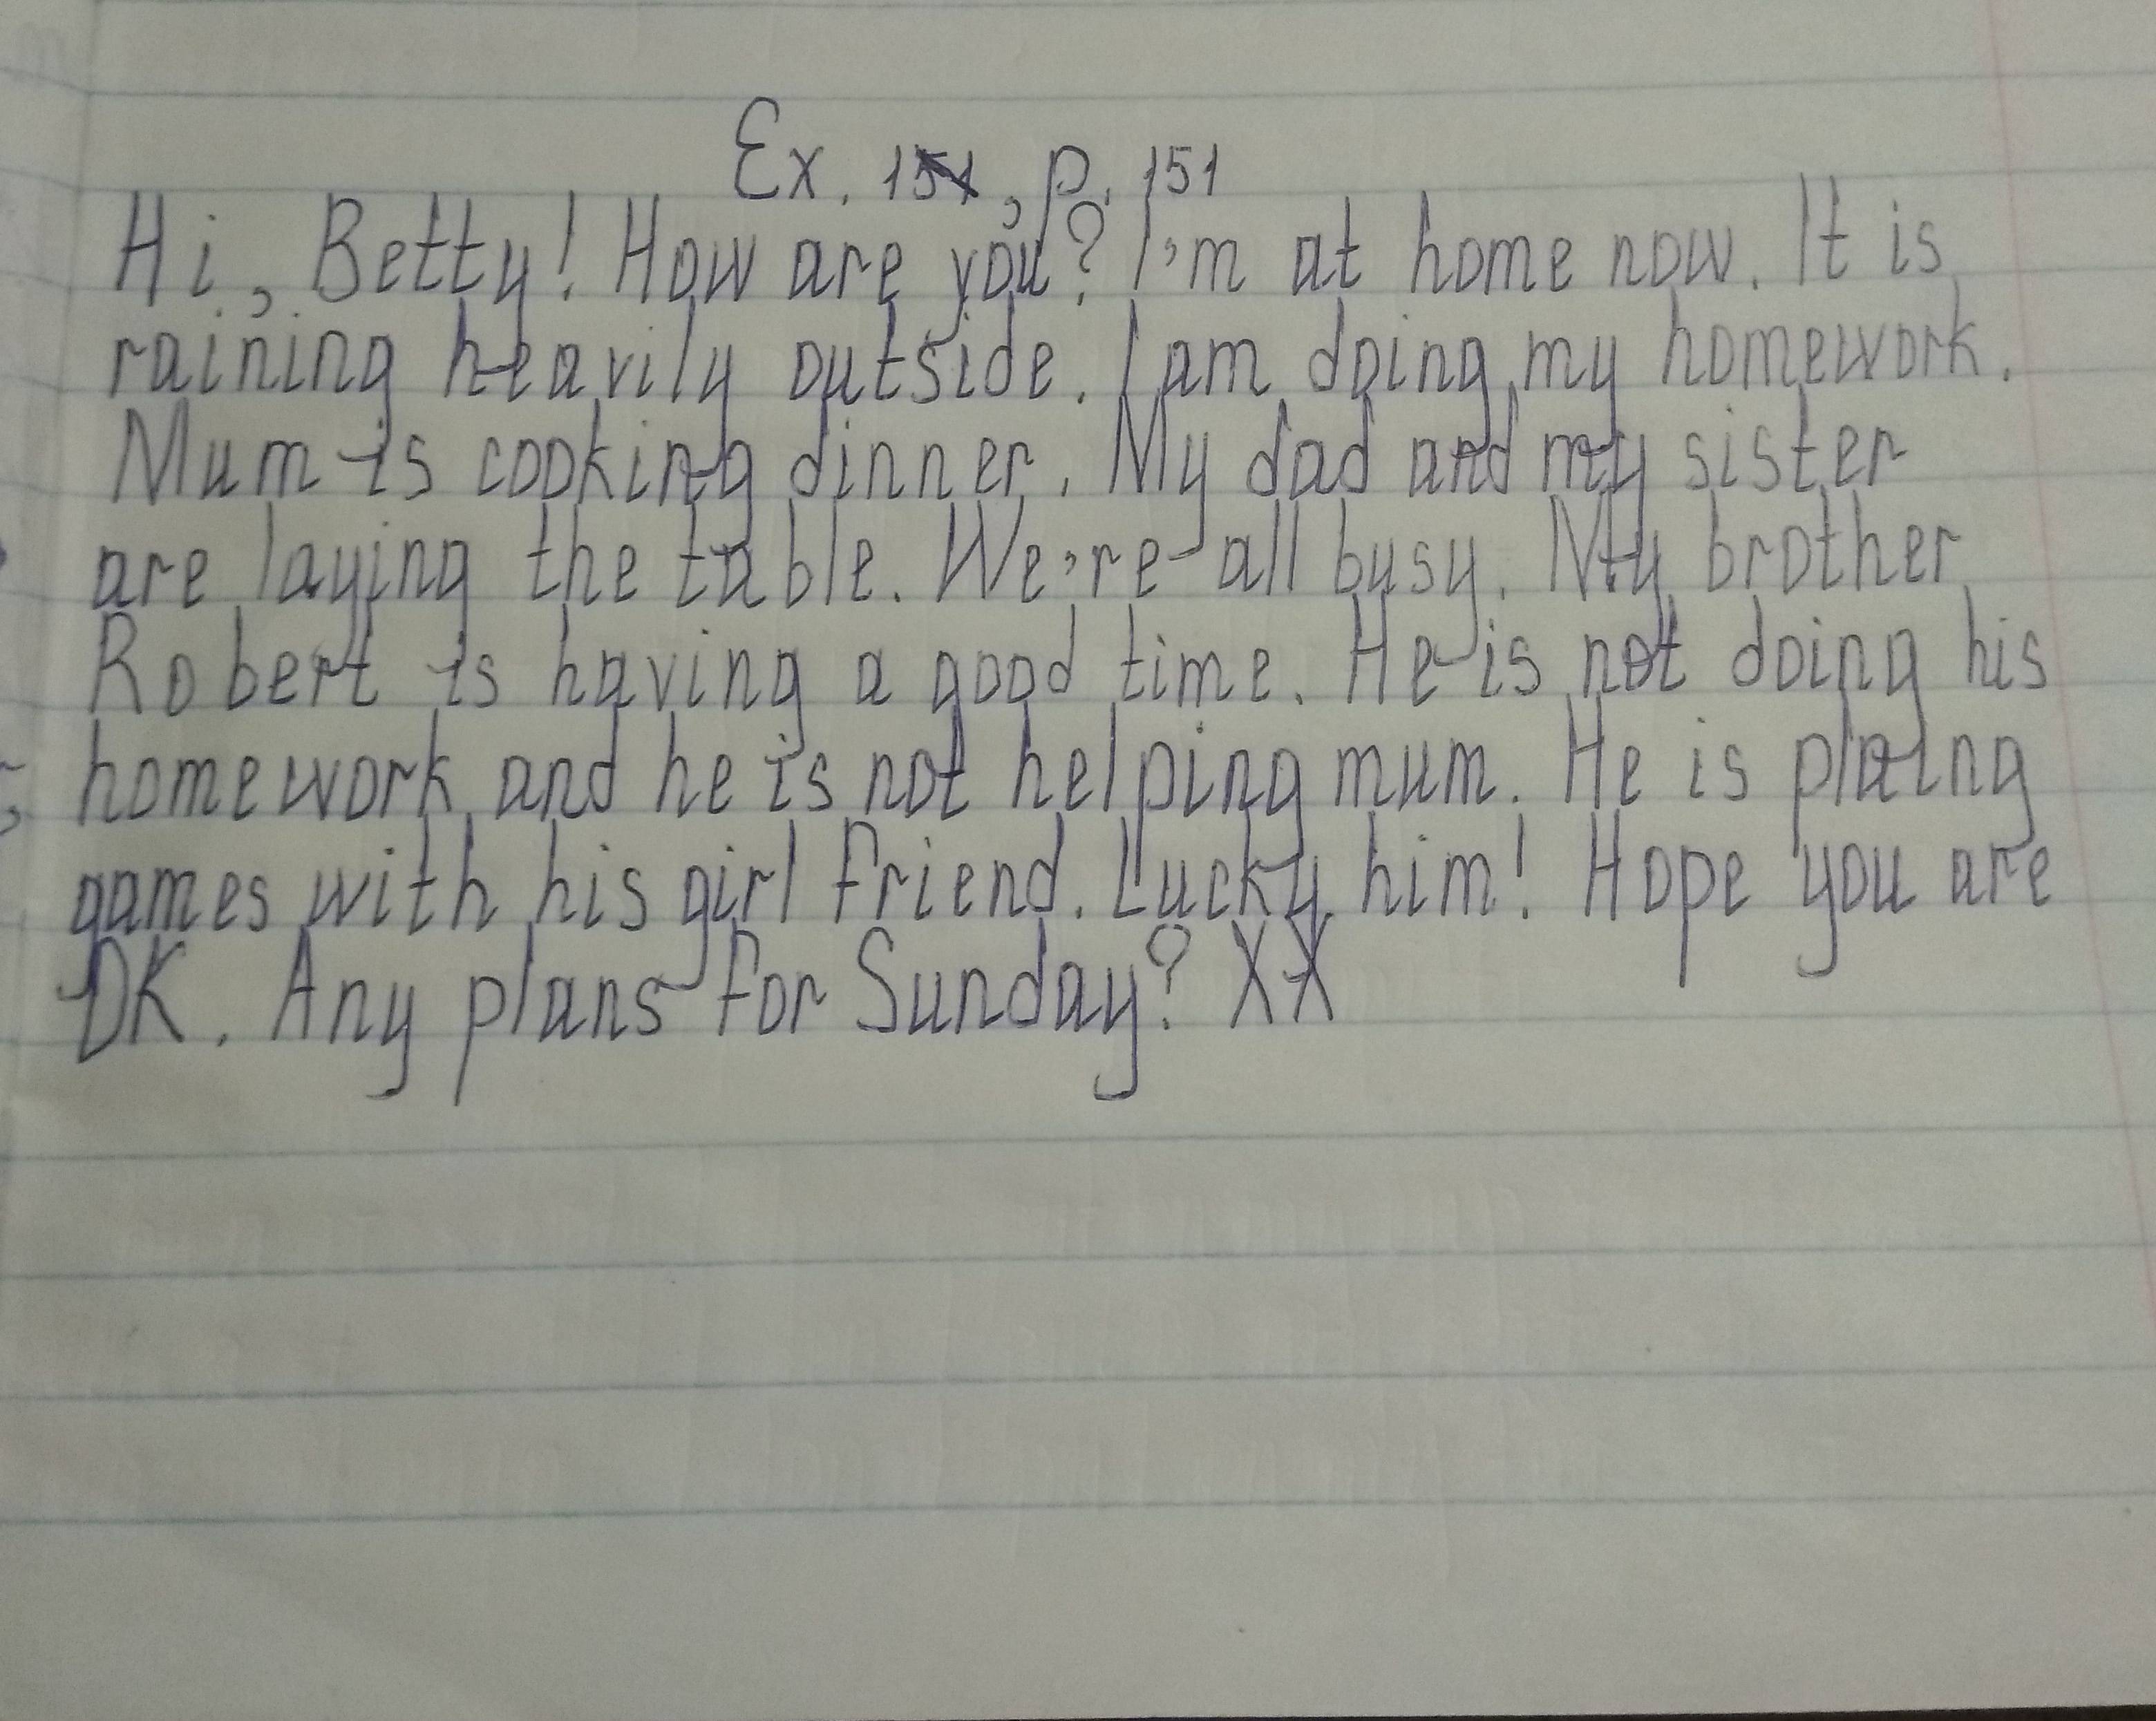 Ex. 1, p. 151
Hi, Betty! How are you? I'm at home now. It is
raining heavily outside. I am doing my homework.
Mum is cooking dinner. My dad and my sister
are laying the table. We're all busy. My brother
Robert is having a good time. He is not doing his
homework and he is not helping mum. He is plaing
games with his girl friend. Lucky him! Hope you are
OK. Any plans for Sunday? XX